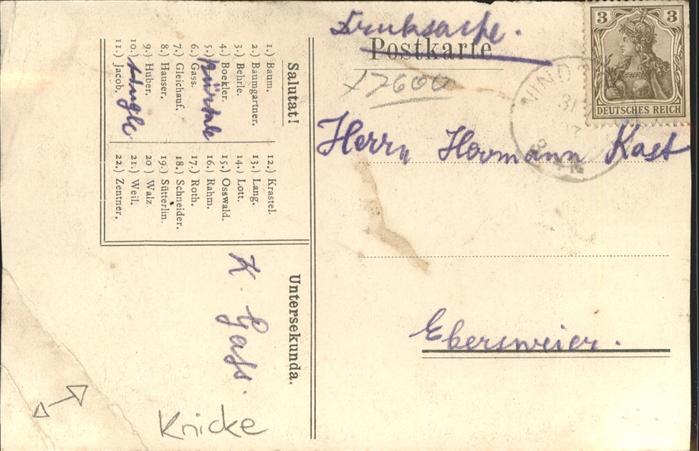 Drucksache.
Postkarte
17600
3 3
DEUTSCHES REICH
Herrn Hermann Kast
Ebersweier.
Salutat!
1.) Baum.
2.) Baumgartner.
3.) Behrle.
4.) Boekler.
5.) Bürkle
6.) Gass.
7.) Gleichauf.
8.) Hauser.
9.) Huber.
10.) Hugle
11.) Jacob.
12.) Krastel.
13.) Lang.
14.) Lott.
15.) Osswald.
16.) Rahm.
17.) Roth.
18.) Schneider.
19.) Sütterlin.
20) Walz
21.) Weil.
22.) Zentner.
Untersekunda.
K. Gass.
Knicke